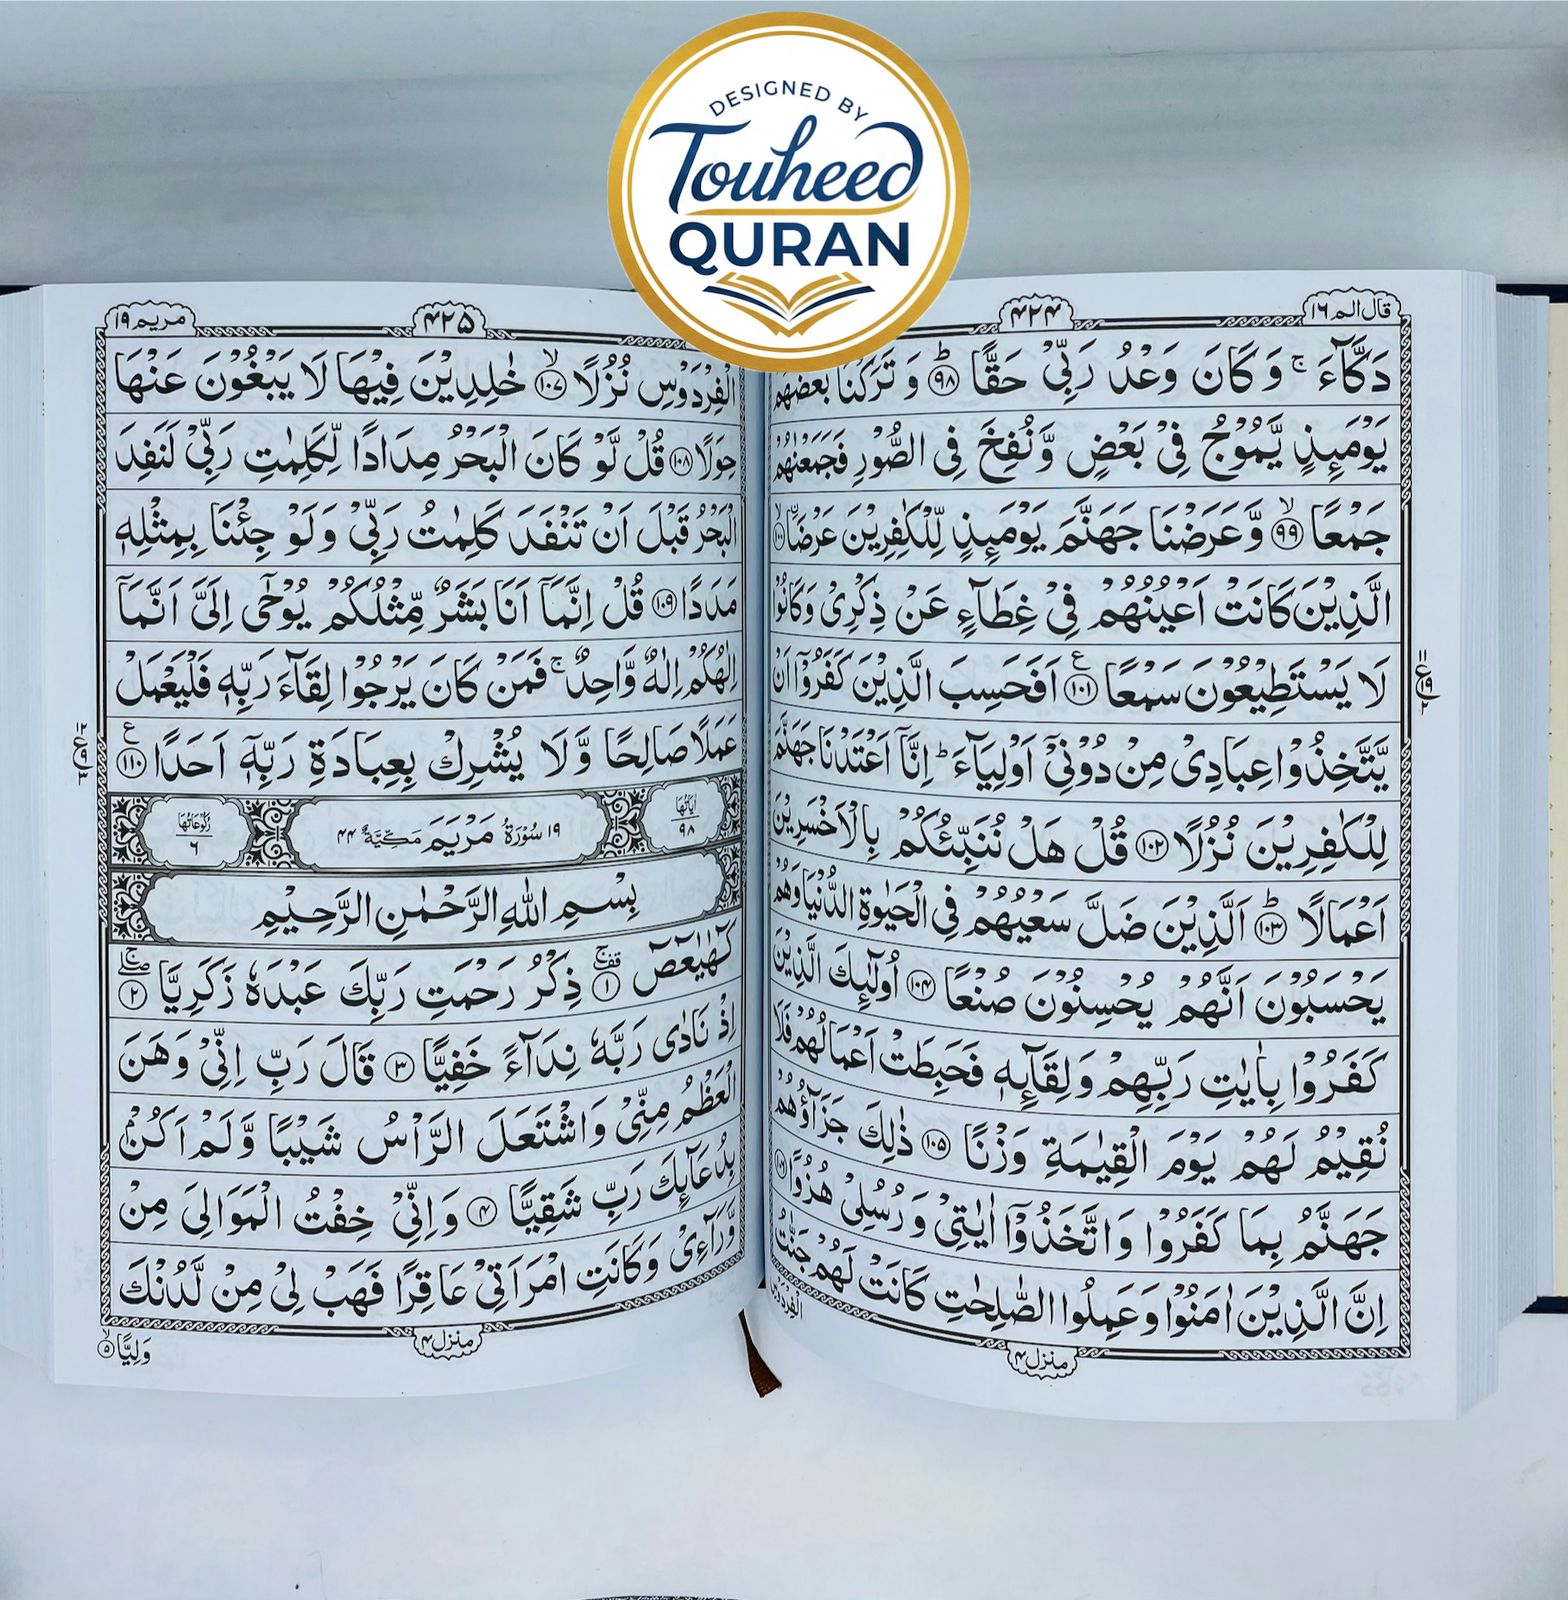 DESIGNED BY
Touheed
QURAN
قال الم ١٦
۴۲۴
دَكَّآءَ ۚ وَكَانَ وَعْدُ رَبِّيْ حَقًّا ؕ ﴿۹۸﴾ وَتَرَكْنَا بَعْضَهُمْ
يَوْمَىِٕذٍ يَّمُوْجُ فِيْ بَعْضٍ وَّنُفِخَ فِى الصُّوْرِ فَجَمَعْنٰهُمْ
جَمْعًا ۙ ﴿۹۹﴾ وَّعَرَضْنَا جَهَنَّمَ يَوْمَىِٕذٍ لِّلْكٰفِرِيْنَ عَرْضَاۨ ۙ ﴿۱۰۰﴾
الَّذِيْنَ كَانَتْ اَعْيُنُهُمْ فِيْ غِطَآءٍ عَنْ ذِكْرِيْ وَكَانُوْا
لَا يَسْتَطِيْعُوْنَ سَمْعًا ﴿۱۰۱﴾ ع اَفَحَسِبَ الَّذِيْنَ كَفَرُوْۤا اَنْ
يَّتَّخِذُوْا عِبَادِيْ مِنْ دُوْنِيْۤ اَوْلِيَآءَ ؕ اِنَّاۤ اَعْتَدْنَا جَهَنَّمَ
لِلْكٰفِرِيْنَ نُزُلًا ﴿۱۰۲﴾ قُلْ هَلْ نُنَبِّئُكُمْ بِالْاَخْسَرِيْنَ
اَعْمَالًا ؕ ﴿۱۰۳﴾ اَلَّذِيْنَ ضَلَّ سَعْيُهُمْ فِى الْحَيٰوةِ الدُّنْيَا وَهُمْ
يَحْسَبُوْنَ اَنَّهُمْ يُحْسِنُوْنَ صُنْعًا ﴿۱۰۴﴾ اُولٰٓىِٕكَ الَّذِيْنَ
كَفَرُوْا بِاٰيٰتِ رَبِّهِمْ وَلِقَآىِٕهٖ فَحَبِطَتْ اَعْمَالُهُمْ فَلَا
نُقِيْمُ لَهُمْ يَوْمَ الْقِيٰمَةِ وَزْنًا ﴿۱۰۵﴾ ذٰلِكَ جَزَآؤُهُمْ
جَهَنَّمُ بِمَا كَفَرُوْا وَاتَّخَذُوْۤا اٰيٰتِيْ وَرُسُلِيْ هُزُوًا ﴿۱۰۶﴾
اِنَّ الَّذِيْنَ اٰمَنُوْا وَعَمِلُوا الصّٰلِحٰتِ كَانَتْ لَهُمْ جَنّٰتُ
الْفِرْدَوْسِ
منزل ۴
مريم ١٩
۴۲۵
الْفِرْدَوْسِ نُزُلًا ۙ ﴿۱۰۷﴾ خٰلِدِيْنَ فِيْهَا لَا يَبْغُوْنَ عَنْهَا
حِوَلًا ﴿۱۰۸﴾ قُلْ لَّوْ كَانَ الْبَحْرُ مِدَادًا لِّكَلِمٰتِ رَبِّيْ لَنَفِدَ
الْبَحْرُ قَبْلَ اَنْ تَنْفَدَ كَلِمٰتُ رَبِّيْ وَلَوْ جِئْنَا بِمِثْلِهٖ
مَدَدًا ﴿۱۰۹﴾ قُلْ اِنَّمَاۤ اَنَا بَشَرٌ مِّثْلُكُمْ يُوْحٰۤى اِلَيَّ اَنَّمَاۤ
اِلٰهُكُمْ اِلٰهٌ وَّاحِدٌ ۚ فَمَنْ كَانَ يَرْجُوْا لِقَآءَ رَبِّهٖ فَلْيَعْمَلْ
عَمَلًا صَالِحًا وَّلَا يُشْرِكْ بِعِبَادَةِ رَبِّهٖۤ اَحَدًا ﴿۱۱۰﴾ ع
اٰيَاتُهَا ۹۸
۱۹ سُوْرَةُ مَرْيَمَ مَكِّيَّةٌ ۴۴
رُكُوْعَاتُهَا ۶
بِسْمِ اللهِ الرَّحْمٰنِ الرَّحِيْمِ
كٓهٰيٰعٓصٓ ﴿۱﴾ ذِكْرُ رَحْمَتِ رَبِّكَ عَبْدَهٗ زَكَرِيَّا ﴿۲﴾
اِذْ نَادٰى رَبَّهٗ نِدَآءً خَفِيًّا ﴿۳﴾ قَالَ رَبِّ اِنِّيْ وَهَنَ
الْعَظْمُ مِنِّيْ وَاشْتَعَلَ الرَّاْسُ شَيْبًا وَّلَمْ اَكُنْۢ
بِدُعَآىِٕكَ رَبِّ شَقِيًّا ﴿۴﴾ وَاِنِّيْ خِفْتُ الْمَوَالِيَ مِنْ
وَّرَآءِيْ وَكَانَتِ امْرَاَتِيْ عَاقِرًا فَهَبْ لِيْ مِنْ لَّدُنْكَ
وَلِيًّا ۙ ﴿۵﴾
منزل ۴